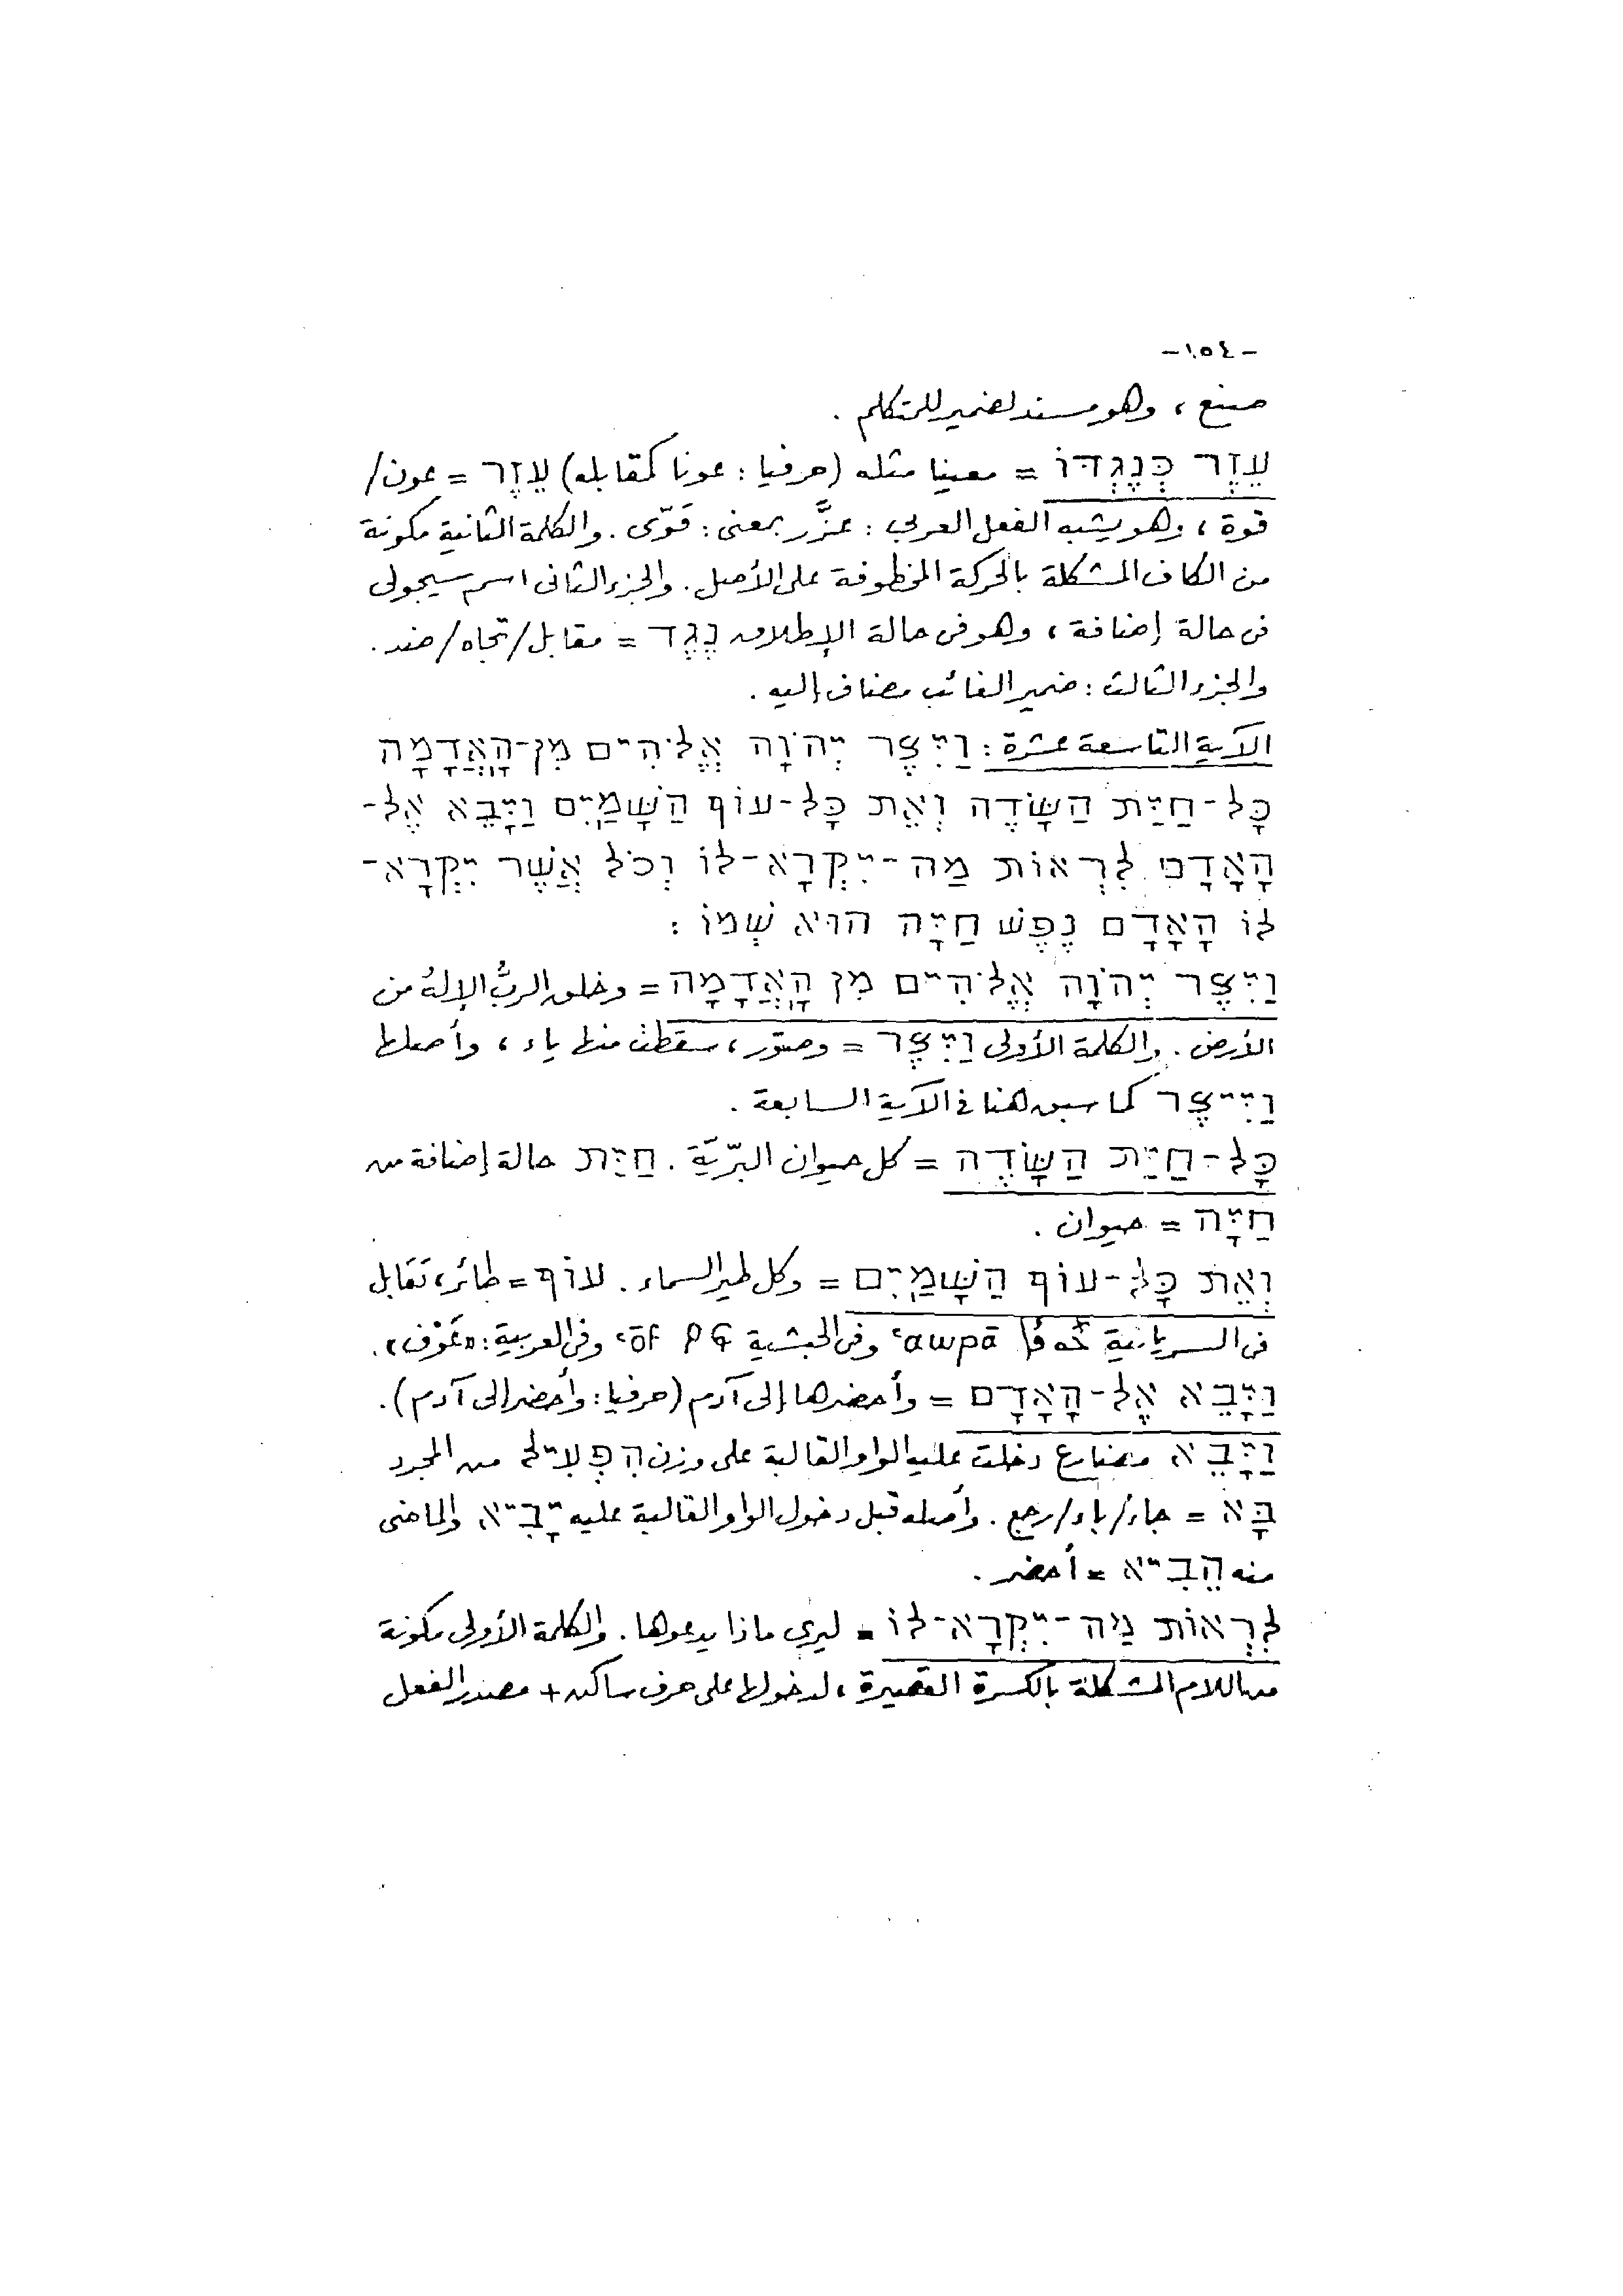 -١٥٤-
صنع ، وهو مسند لضمير للمتكلم .
עֵזֶר כְּנֶגְדּוֹ = معينا مثله (حرفيا : عونا كمقابله) עֵזֶר = عون/
قوة ، وهو يشبه الفعل العربى : عزَّر بمعنى : قوّى . والكلمة الثانية مكونة
من الكاف المشكلة بالحركة المخطوفة على الأصل . والجزء الثانى اسم سيجولى
فى حالة إضافة ، وهو فى حالة الإطلاق נֶגֶד = مقابل/تجاه/ضد .
والجزء الثالث : ضمير الغائب مضاف إليه .
الآية التاسعة عشرة : וַיִּצֶר יְהֹוָה אֱלֹהִים מִן-הָאֲדָמָה
כָּל-חַיַּת הַשָּׂדֶה וְאֵת כָּל-עוֹף הַשָּׁמַיִם וַיָּבֵא אֶל-
הָאָדָם לִרְאוֹת מַה-יִּקְרָא-לוֹ וְכֹל אֲשֶׁר יִקְרָא-
לוֹ הָאָדָם נֶפֶשׁ חַיָּה הוּא שְׁמוֹ :
וַיִּצֶר יְהֹוָה אֱלֹהִים מִן הָאֲדָמָה = وخلق الربُّ الإلهُ من
الأرض . والكلمة الأولى וַיִּצֶר = وصوّر ، سقطت منها ياء ، وأصلها
וַיִּיצֶר كما سبق هنا فى الآية السابعة .
כָּל-חַיַּת הַשָּׂדֶה = كل حيوان البرّيَّة . חַיַּת حالة إضافة من
חַיָּה = حيوان .
וְאֵת כָּל-עוֹף הַשָּׁמַיִם = وكل طير السماء . עוֹף = طائر ، تَقَابل
فى السريانية ܥܰܘܦܳܐ ‘awpā وفى الحبشية ዖፍ ‘ōf وفى العربية : «عَوْف» .
וַיָּבֵא אֶל-הָאָדָם = وأحضرها إلى آدم (حرفيا : وأحضر إلى آدم) .
וַיָּבֵא مضارع دخلت عليه الواو القالبة على وزن הִפְעִיל من المجرد
בָּא = جاء/باء/رجع . وأصله قبل دخول الواو القالبة عليه יָבִיא والماضى
منه הֵבִיא = أحضر .
לִרְאוֹת מַה-יִּקְרָא-לוֹ = ليرى ماذا يدعوها . والكلمة الأولى مكونة
من اللام المشكلة بالكسرة القصيرة ، لدخولها على حرف ساكن + مصدر الفعل